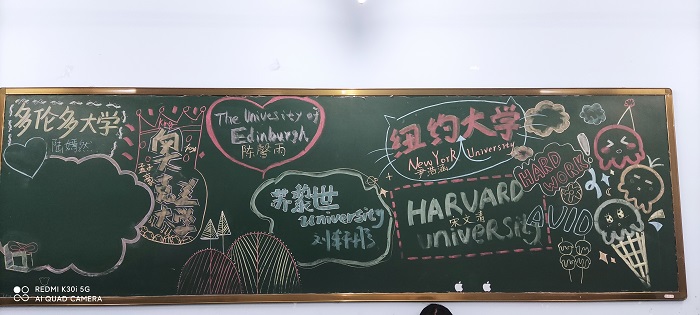 多伦多大学
陆嫣然
奥克兰大学
The University of
Edinburgh
陈馨雨
纽约大学
New York University
苏黎世
university
HARVARD
宋文清
university
HARD
WORK!
AVID
REDMI K30i 5G
AI QUAD CAMERA